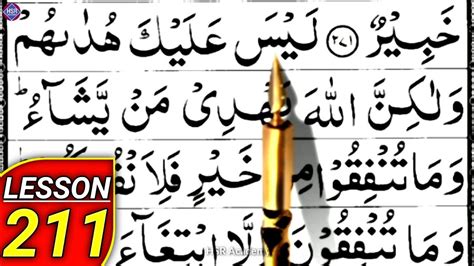 HSR
خَبِيْرٌ ﴿۲۷۱﴾ لَيْسَ عَلَيْكَ هُدٰىهُمْ
وَلٰكِنَّ اللّٰهَ يَهْدِىْ مَنْ يَّشَآءُ ؕ
وَمَا تُنْفِقُوْا مِنْ خَيْرٍ
وَمَا تُنْفِقُوْنَ اِلَّا ابْتِغَآءَ
LESSON
211
HSR Academy